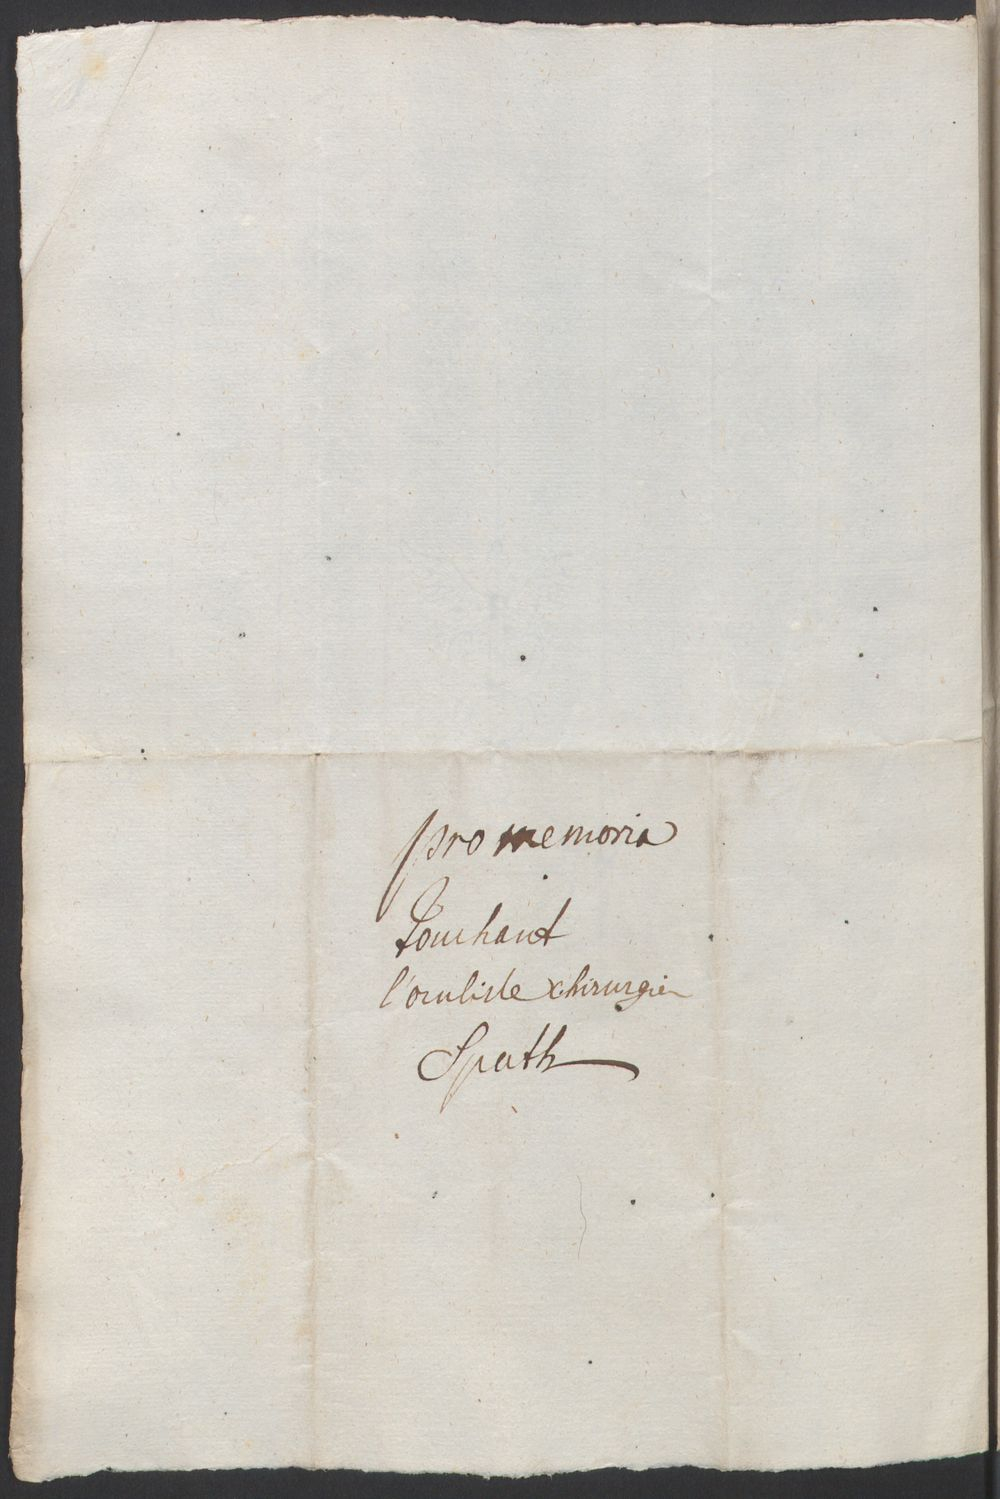 pro memoria
Touchant
l'oculiste chirurgien
Spath